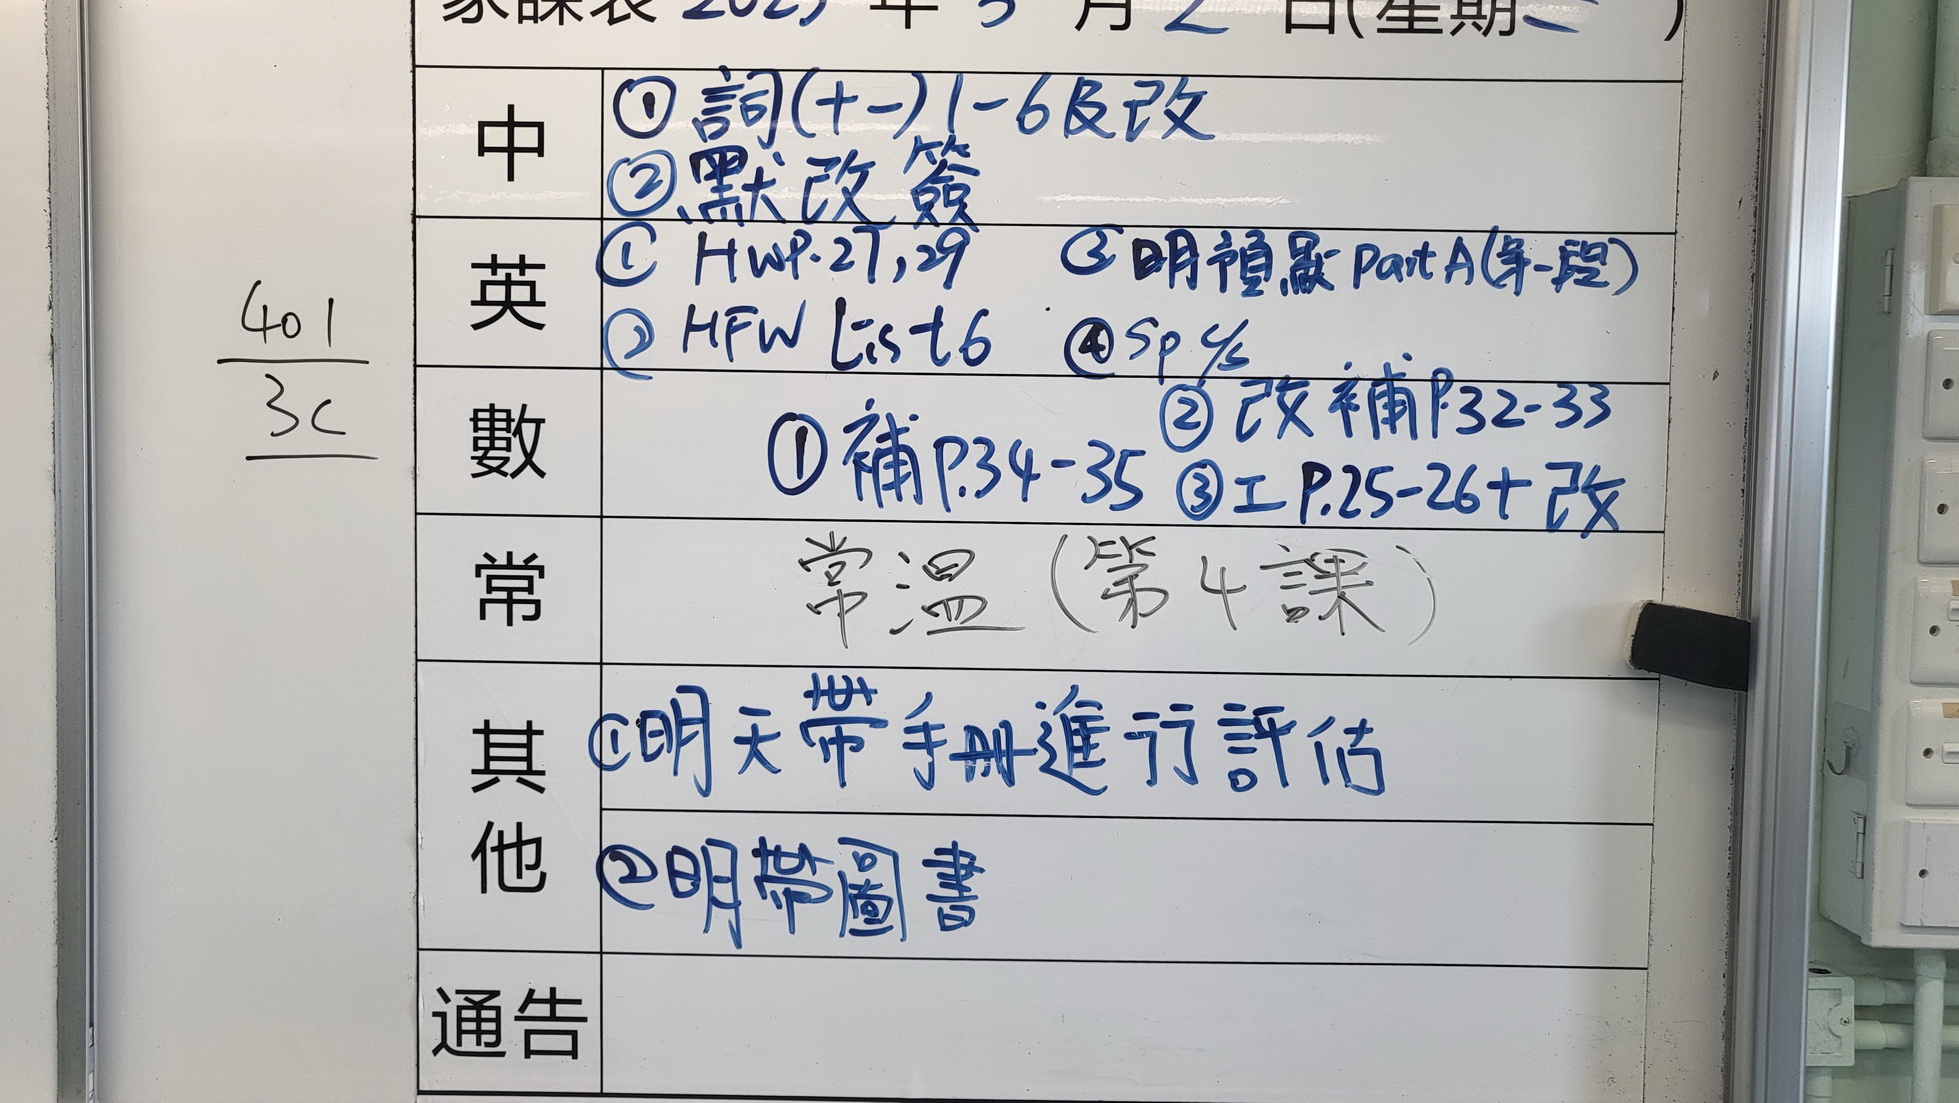 家課表 2025 年 5 月 2 日(星期二)
中
① 詞(十一) 1-6及改
② 默改簽
英
① HWP.27,29 ③ 明預默 Part A (第一段)
② HFW List 6 ④ Sp c/s
401
3C
數
② 改補P.32-33
① 補P.34-35 ③ 工P.25-26+改
常
常溫(第4課)
其他
① 明天帶手冊進行評估
② 明帶圖書
通告